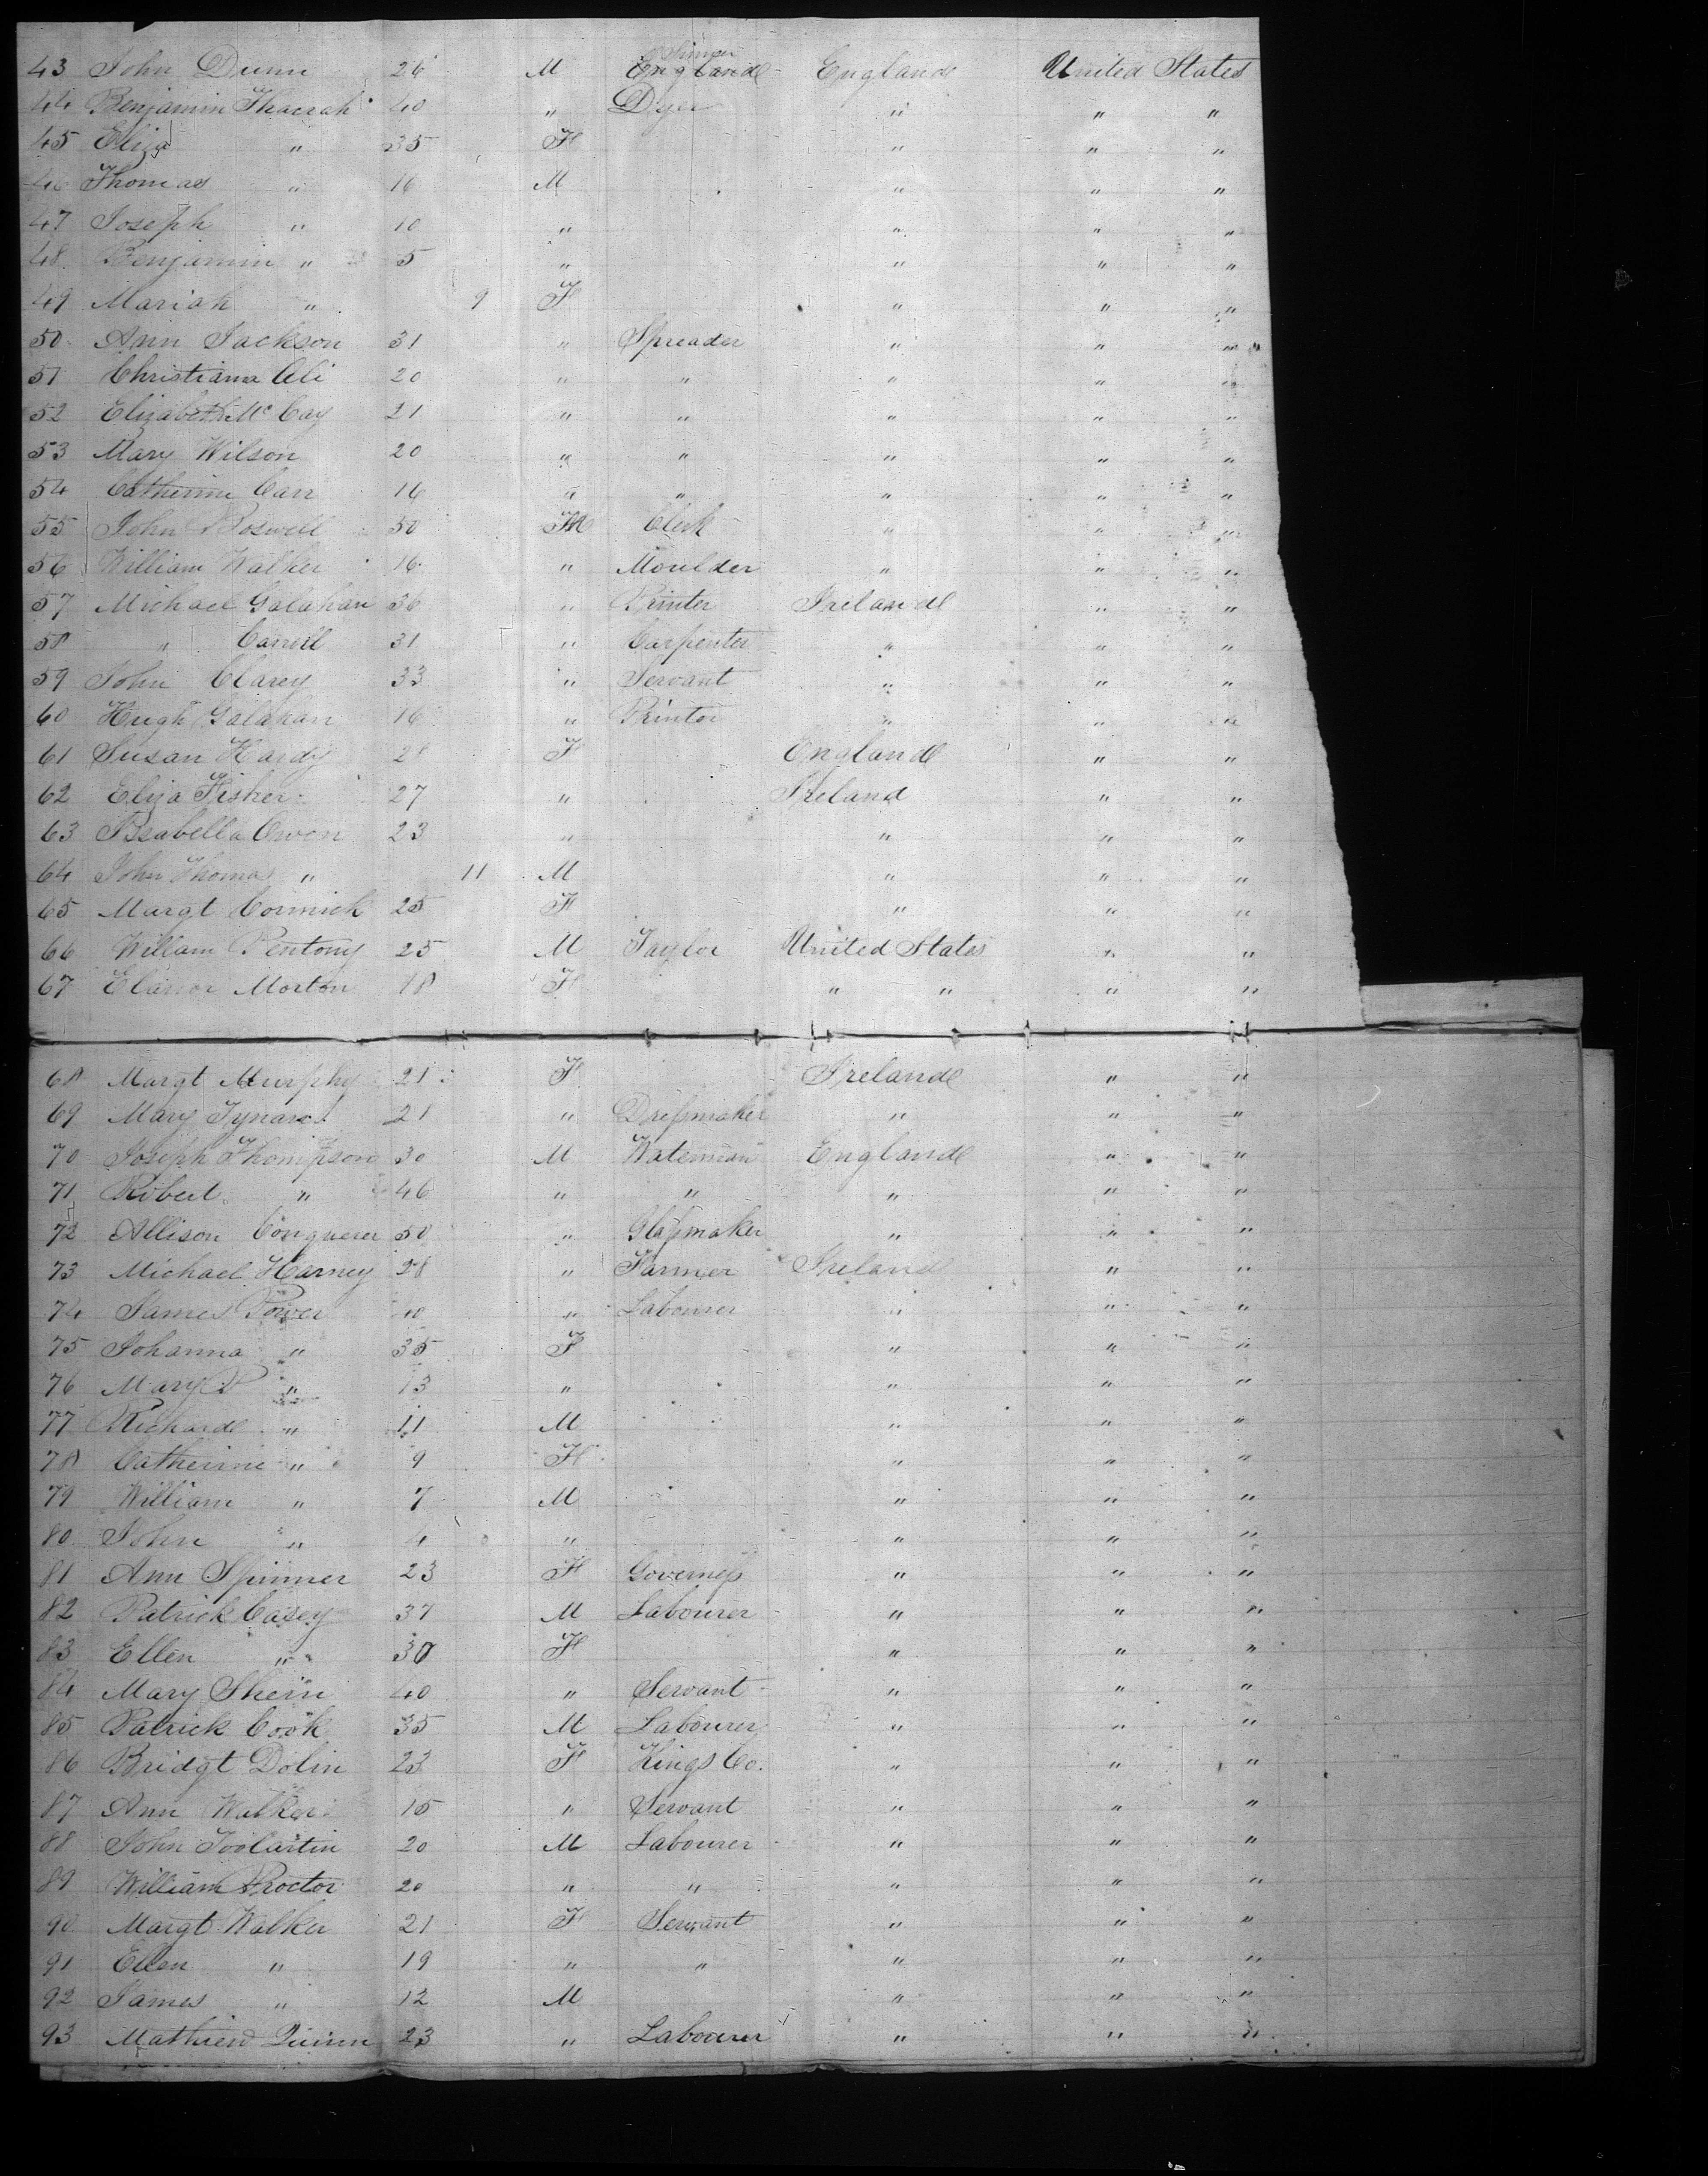 43 John Dunn 26 M England England United States
44 Benjamin Thacrah 40 " Dyer " " "
45 Eliza " 35 F " " "
46 Thomas " 16 M " " "
47 Joseph " 10 " " " "
48 Benjamin " 5 " " " "
49 Mariah " 9 F " " "
50 Ann Jackson 31 " Spreader " " "
51 Christiana Ali 20 " " " " "
52 Elizabeth Mc Cay 21 " " " " "
53 Mary Wilson 20 " " " " "
54 Catherine Carr 16 " " " " "
55 John Boswell 50 M Clerk " " "
56 William Walker 16 " Moulder " " "
57 Michael Galahan 36 " Printer Ireland " "
58 " Carroll 31 " Carpenter " " "
59 John Clarey 33 " Servant " " "
60 Hugh Galahan 16 " Printer " " "
61 Susan Hardy 28 F England " "
62 Eliza Fisher 27 " Ireland " "
63 Issabella Owen 23 " " " "
64 John Thomas " 11 M " " "
65 Margt Cormick 25 F " " "
66 William Pentony 25 M Taylor United States " "
67 Elanor Morton 18 F " " " "
68 Margt Murphy 21 F Ireland " "
69 Mary Tynan 21 " Dressmaker " " "
70 Joseph Thompson 30 M Waterman England " "
71 Robert " 46 " " " " "
72 Allison Conquerer 50 " Glassmaker " " "
73 Michael Harney 28 " Farmer Ireland " "
74 James Power 40 " Labourer " " "
75 Johanna " 35 F " " "
76 Mary " 13 " " " "
77 Richard " 11 M " " "
78 Catherine " 9 F " " "
79 William " 7 M " " "
80 John " 4 " " " "
81 Ann Spinner 23 F Governess " " "
82 Patrick Casey 37 M Labourer " " "
83 Ellen " 30 F " " "
84 Mary Shein 40 " Servant " " "
85 Patrick Cook 35 M Labourer " " "
86 Bridgt Dolin 23 F Kings Co. " " "
87 Ann Walker 15 " Servant " " "
88 John Toolartin 20 M Labourer " " "
89 William Proctor 20 " " " " "
90 Margt Walker 21 F Servant " " "
91 Ellen " 19 " " " " "
92 James " 12 M " " "
93 Mathiew Quinn 23 " Labourer " " "